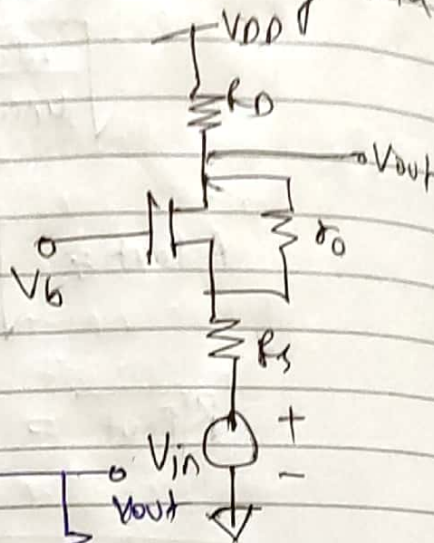 VDD
RD
Vout
ro
Vb
Rs
+
Vin
-
Vout